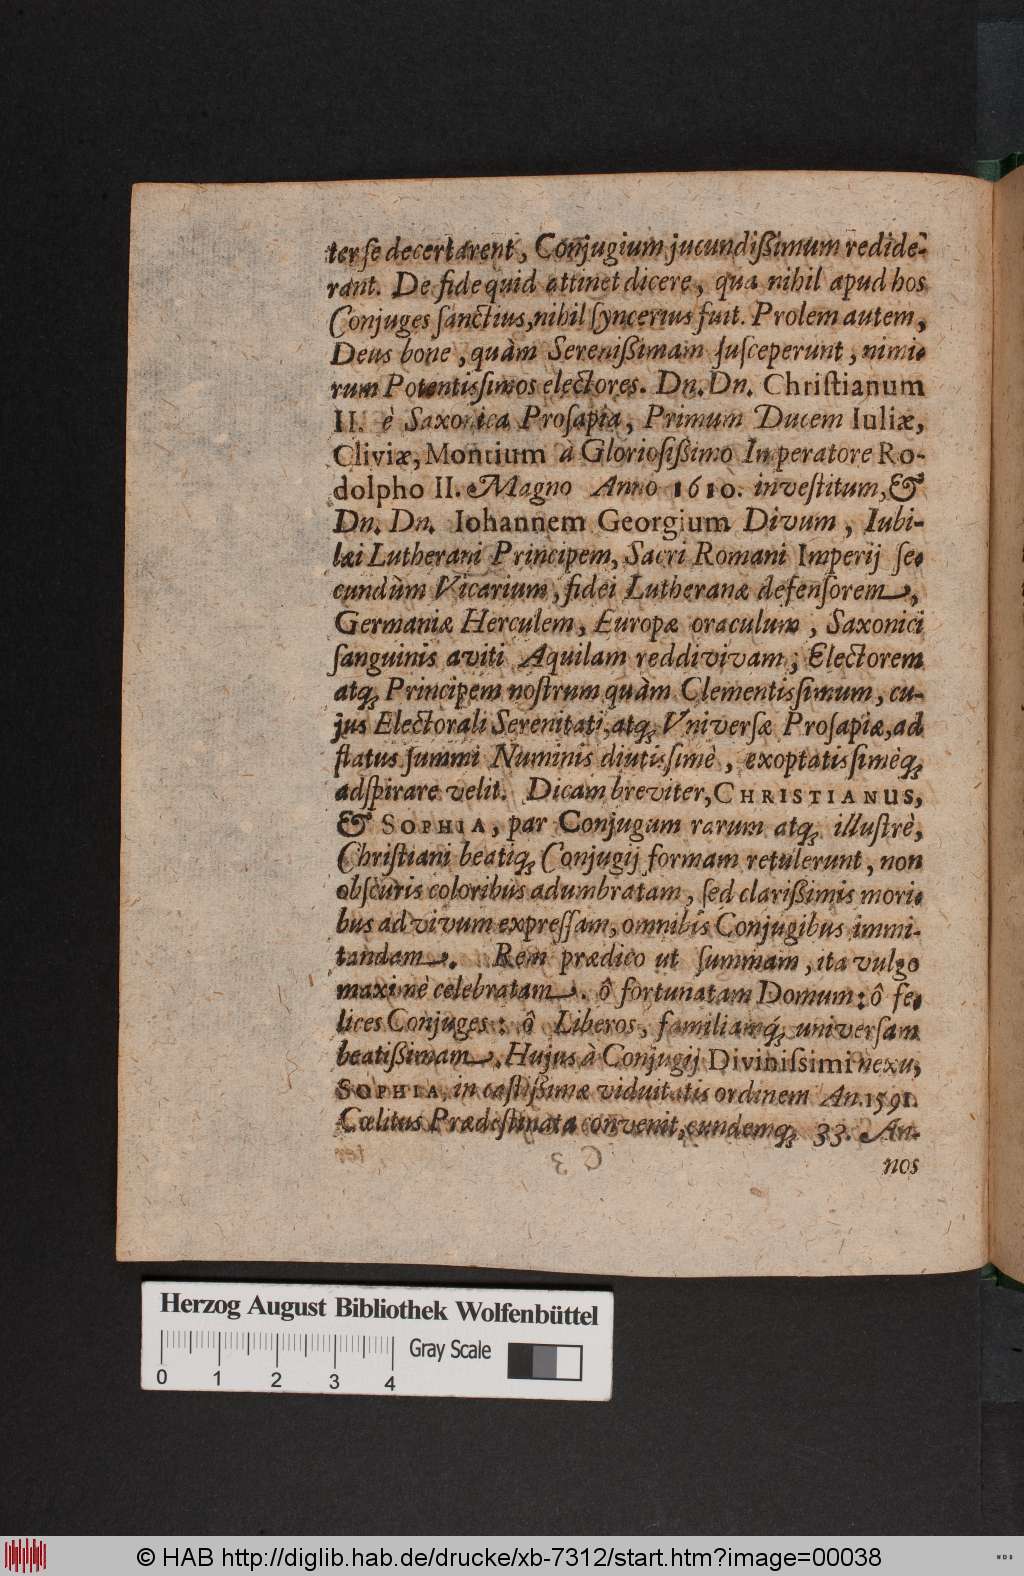 ter ſe decertarent, Conjugium jucundiſſimum redide-
rant. De fide quid attinet dicere, qua nihil apud hos
Conjuges ſanctius, nihil ſyncerius fuit. Prolem autem,
Deus bone, quàm Sereniſſimam ſuſceperunt, nimi-
rum Potentisſimos electores. Dn. Dn. Chriſtianum
II. è Saxonica Proſapia, Primum Ducem Iuliæ,
Cliviæ, Montium à Glorioſiſſimo Imperatore Ro-
dolpho II. Magno Anno 1610. inveſtitum, &
Dn. Dn. Iohannem Georgium Divum, Iubi-
læi Lutherani Principem, Sacri Romani Imperij ſe-
cundùm Vicarium, fidei Lutheranæ defenſorem,
Germaniæ Herculem, Europæ oraculum, Saxonici
ſanguinis aviti Aquilam reddivivam, Electorem
atq; Principem noſtrum quàm Clementisſimum, cu-
jus Electorali Serenitati, atq; Vniverſæ Proſapiæ, ad
ſlatus ſummi Numinis diutisſimè, exoptatisſimèq;
adſpirare velit. Dicam breviter, CHRISTIANUS,
& SOPHIA, par Conjugum rarum atq; illuſtrè,
Chriſtiani beatiq; Conjugij formam retulerunt, non
obſcuris coloribus adumbratam, ſed clariſſimis mori-
bus ad vivum expreſſam, omnibis Conjugibus immi-
tandam. Rem prædico ut ſummam, ita vulgo
maximè celebratam. ô fortunatam Domum: ô fe-
lices Conjuges: ô Liberos, familiamq́; univerſam
beatiſſimam. Hujus à Conjugij Diviniſsimi nexu,
SOPHIA, in caſtiſſimæ viduitatis ordinem An. 1591.
Cœlitus Prædeſtinata convenit, eundemq; 33. An-
nos
Herzog August Bibliothek Wolfenbüttel
Gray Scale
0 1 2 3 4
© HAB http://diglib.hab.de/drucke/xb-7312/start.htm?image=00038